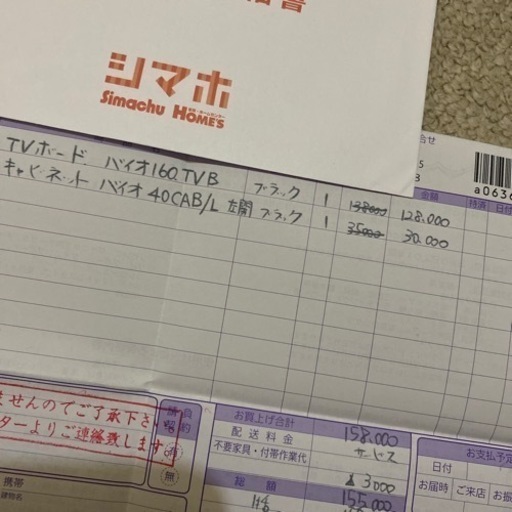 シマホ
Simachu HOME'S
金額
持済
日付
a0636
TVボード バイオ160TVB ブラック 1 138000 128.000
キャビネット バイオ40CAB/L 左開 ブラック 1 35000 30.000
ませんのでご了承下さ
ターよりご連絡致します。
携帯
お買上げ合計 158.000
配送料金 サービス
不要家具・付帯作業代
▲3000
総額 155.000
お支払予定
日付
お届時 ご来店 お振